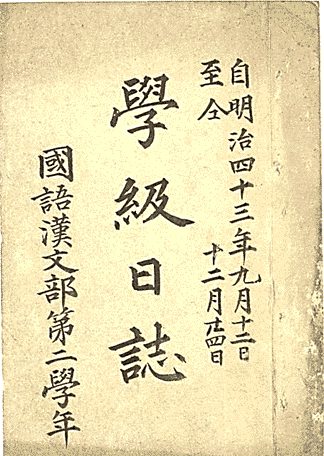 自明治四十三年九月十二日
至仝十二月廿四日
學級日誌
國語漢文部第二學年